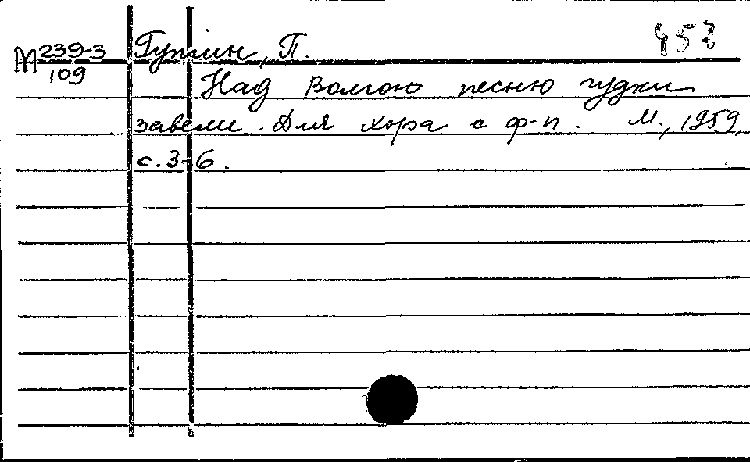 453
М 239-3 П.
109
Над Волгою песню гудки
завели. Для хора с ф-п. М., 1959,
с. 3-6.